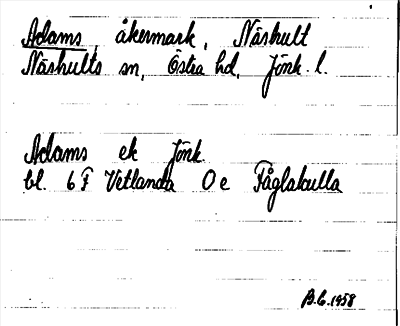 Adams, åkermark, Näshult
Näshults sn, Östra hd, Jönk. l.
Adams ek Jönk.
bl. 6 F Vetlanda O e Fåglakulla
B.G. 1958